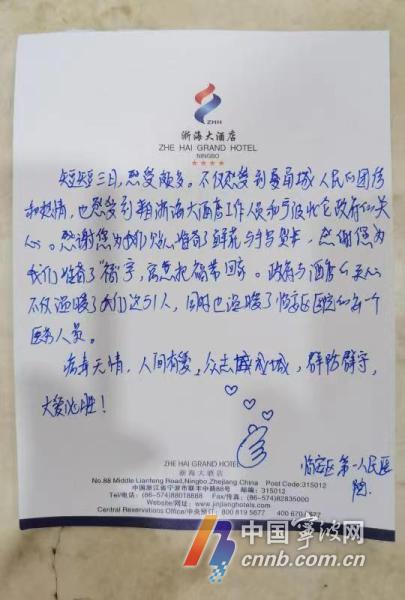 ZHH
浙海大酒店
ZHE HAI GRAND HOTEL
NINGBO
短短三日,感受颇多。不仅感受到甬城人民的团结
和热情,也感受到浙海大酒店工作人员和宁波北仑政府的关
心。感谢您为我们贴心准备了鲜花与手写贺卡,感谢您为
我们准备了"福"字,寓意把福带回家。政府与酒店的关心
不仅温暖了我们这51人,同时也温暖了临安区医院的每一个
医务人员。
病毒无情,人间有爱,众志成城,群防群守,
大爱北仑!
临安区第一人民医
院
ZHE HAI GRAND HOTEL
浙海大酒店
No.88 Middle Lianfeng Road,Ningbo,Zhejiang China Post Code:315012
中国浙江省宁波市联丰中路88号 邮编:315012
Tel/电话:(86-574)88018888 Fax/传真:(86-574)82835000
Website/网址:www.jinjianghotels.com
Central Reservations Office/中央预订:800 819 5677 400 670
中国宁波网
cnnb.com.cn